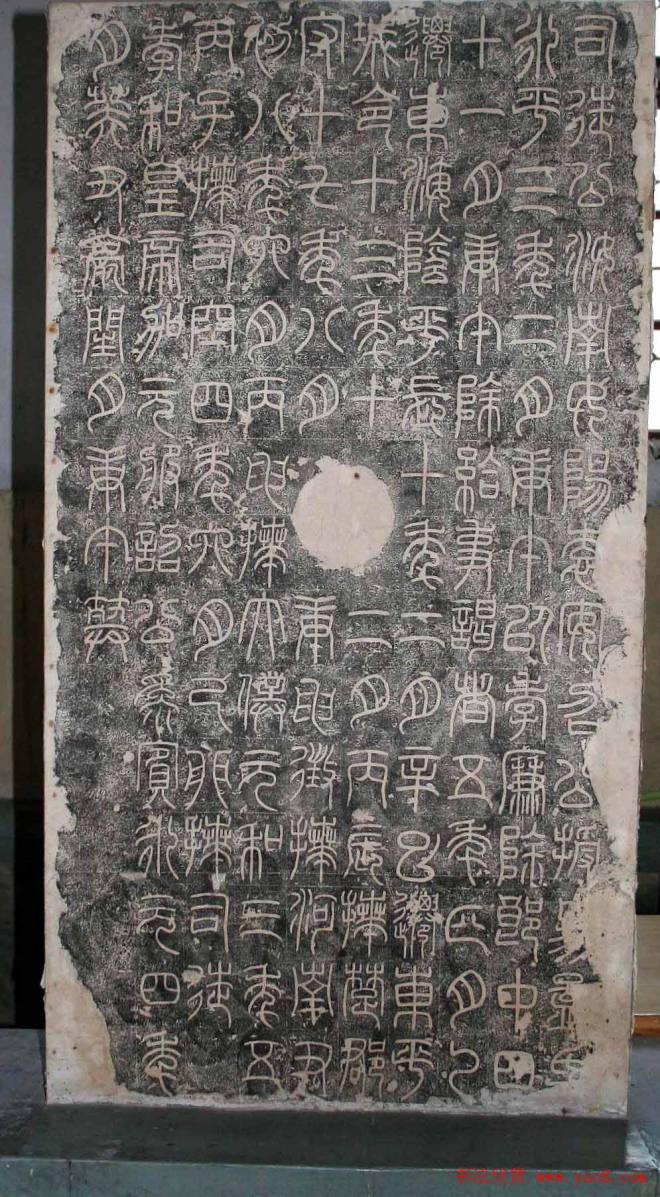 司徒公汝南女陽袁安召公授易孟氏
永平三年二月庚午以孝廉除郎中四
十一月庚午除給事謁者五年正月乙
遷東海陰平長十年二月辛巳遷東平
城令十三年十二月丙辰拜楚郡
守十七年八月庚申徵拜河南尹
初八年六月丙申拜太僕元和三年五
丙子拜司空四年六月己卯拜司徒
孝和皇帝加元服詔公為賓永元四年
月癸丑薨閏月庚午葬
书法欣赏 www.yac8.com